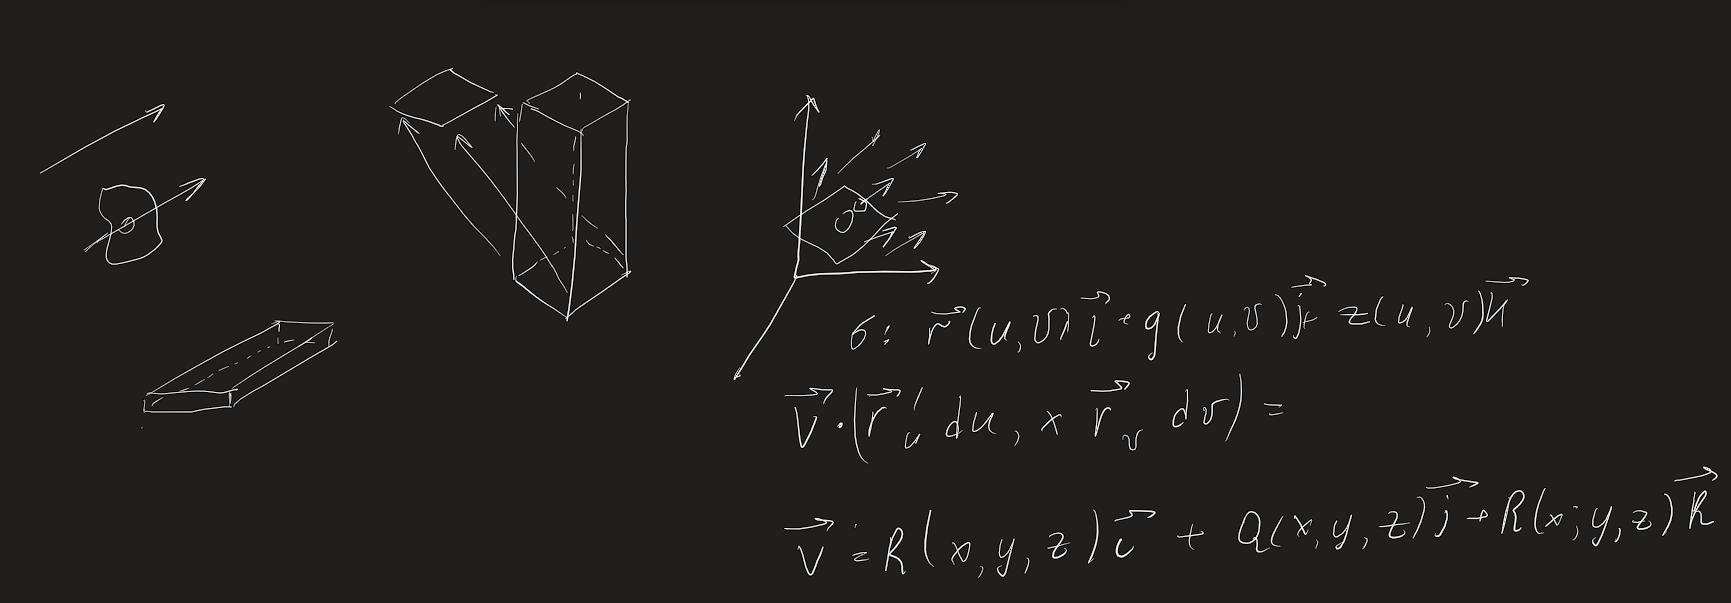 σ: r⃗(u,v) i⃗ + y(u,v) j⃗ + z(u,v) k⃗
V⃗ · (r⃗'ᵤ du, × r⃗ᵥ dv) =
V⃗ = R(x,y,z) i⃗ + Q(x,y,z) j⃗ + R(x,y,z) k⃗